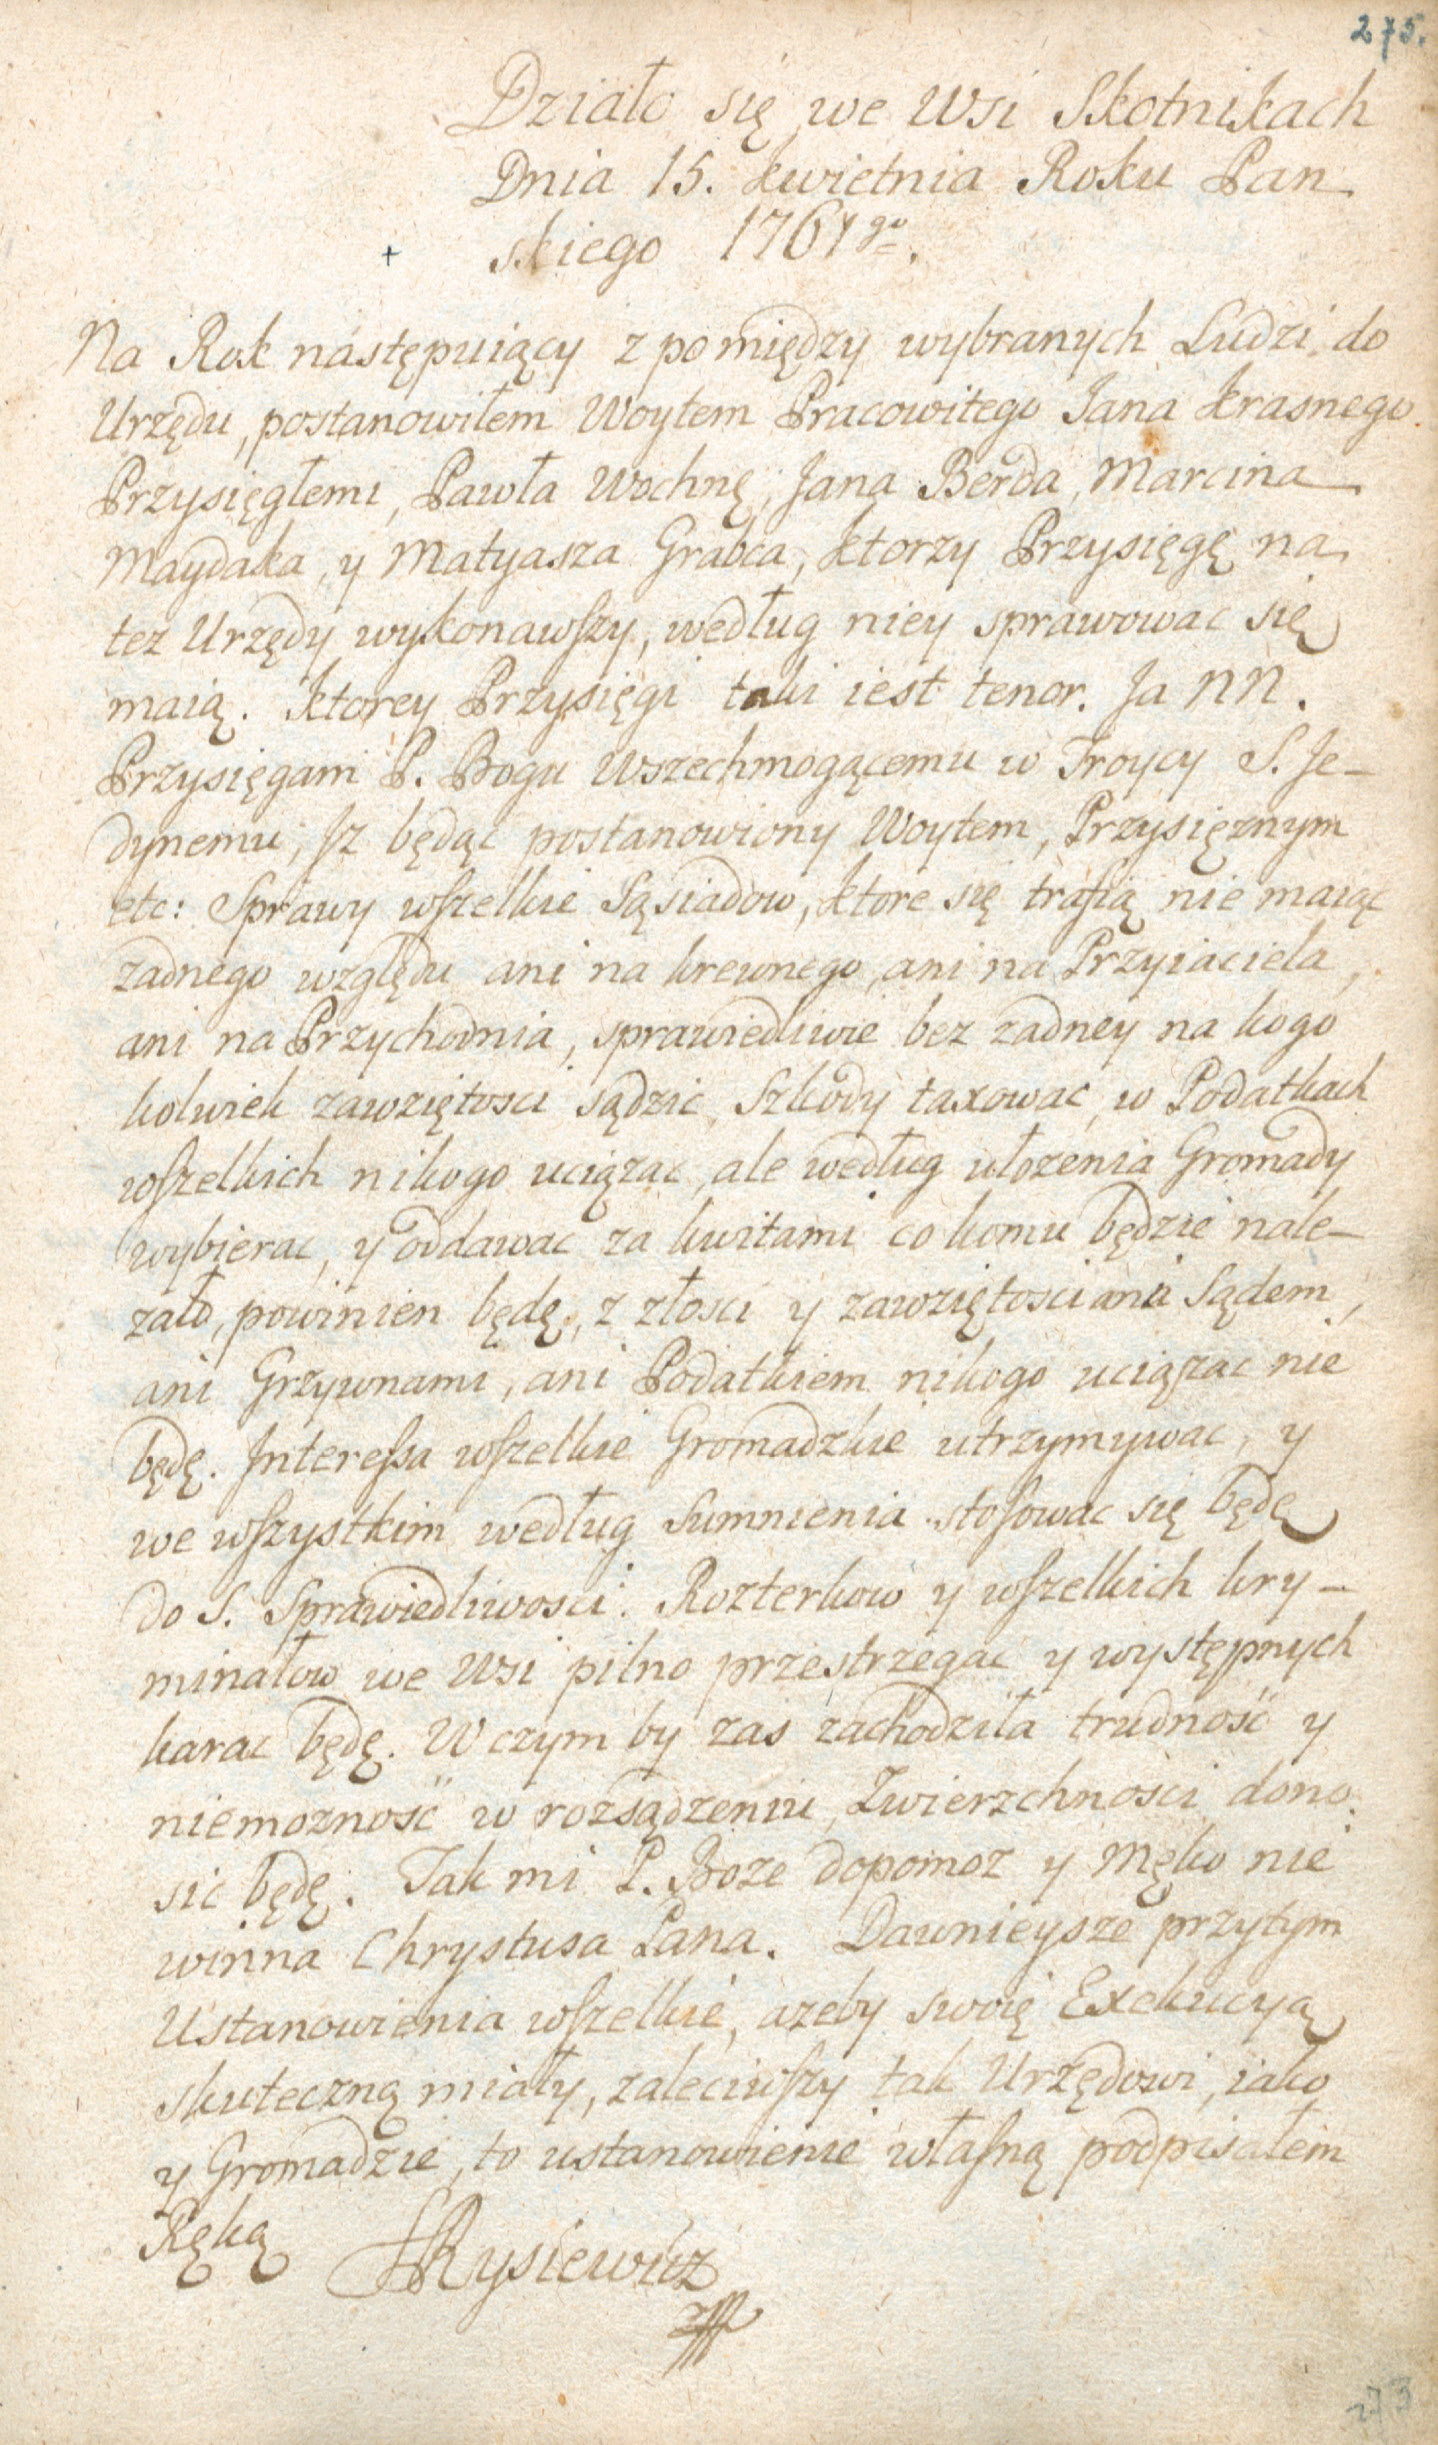 275.
Działo się we Wsi Skotnikach
Dnia 15. kwietnia Roku Pan
skiego 1761go.
+
Na Rok następuiący z pomiędzy wybranych Ludzi do
Urzędu, postanowiłem Woytem Pracowitego Jana Krasnego
Przysięgłemi, Pawła Wochnę, Jana Berda, Marcina
Maydaka, y Matyasza Grabca, ktorzy Przysięgę na
tez Urzędy wykonawſzy, według niey sprawowac się
maią. Ktorey Przysięgi taki iest tenor. Ja NN.
Przysięgam P. Bogu Wszechmogącemu w Troycy S. Je-
dynemu, Jz będąc postanowiony Woytem, Przysięznym
etc: Sprawy wſzelkie Sąsiadow, ktore się trafią nie maiąc
zadnego względu ani na krewnego, ani na Przyiaciela,
ani na Przychodnia, sprawiedliwie bez zadney na kogo
kolwiek zawziętosci sądzic, Szkody taxowac, w Podatkach
wſzelkich nikogo uciązac, ale według ułozenia Gromady
wybierac, y oddawac za kwitami co komu będzie nale-
zało, powinien będę, z złosci y zawziętosci ani Sądem,
ani Grzywnami, ani Podatkiem nikogo uciązac nie
będę. Intereſsa wſzelkie Gromadzkie utrzymywac, y
we wſzystkim według Sumnienia stoſowac się będę
do S. Sprawiedliwosci. Rozterkow y wſzelkich kry-
minałow we Wsi pilno przestrzegac y występnych
karac będę. W czym by zas zachodziła trudność y
niemozność w rozsądzeniu, Zwierzchności dono
sic będę. Tak mi P. Boze dopomoz y Męko nie
winna Chrystusa Pana. Dawnieysze przytym
Ustanowienia wſzelkie, azeby swoię Exekucyą
skuteczną miały, zaleciwſzy tak Urzędowi, iako
y Gromadzie, to ustanowienie właſną podpisałem
Ręką Rysiewicz
273